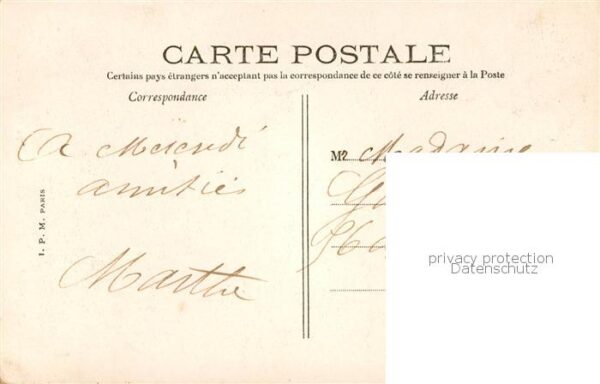 CARTE POSTALE
Certains pays étrangers n'acceptant pas la correspondance de ce côté se renseigner à la Poste
Correspondance
Adresse
A Mercredi
amitiés
Marthe
M Madame
I. P. M. PARIS
privacy protection
Datenschutz